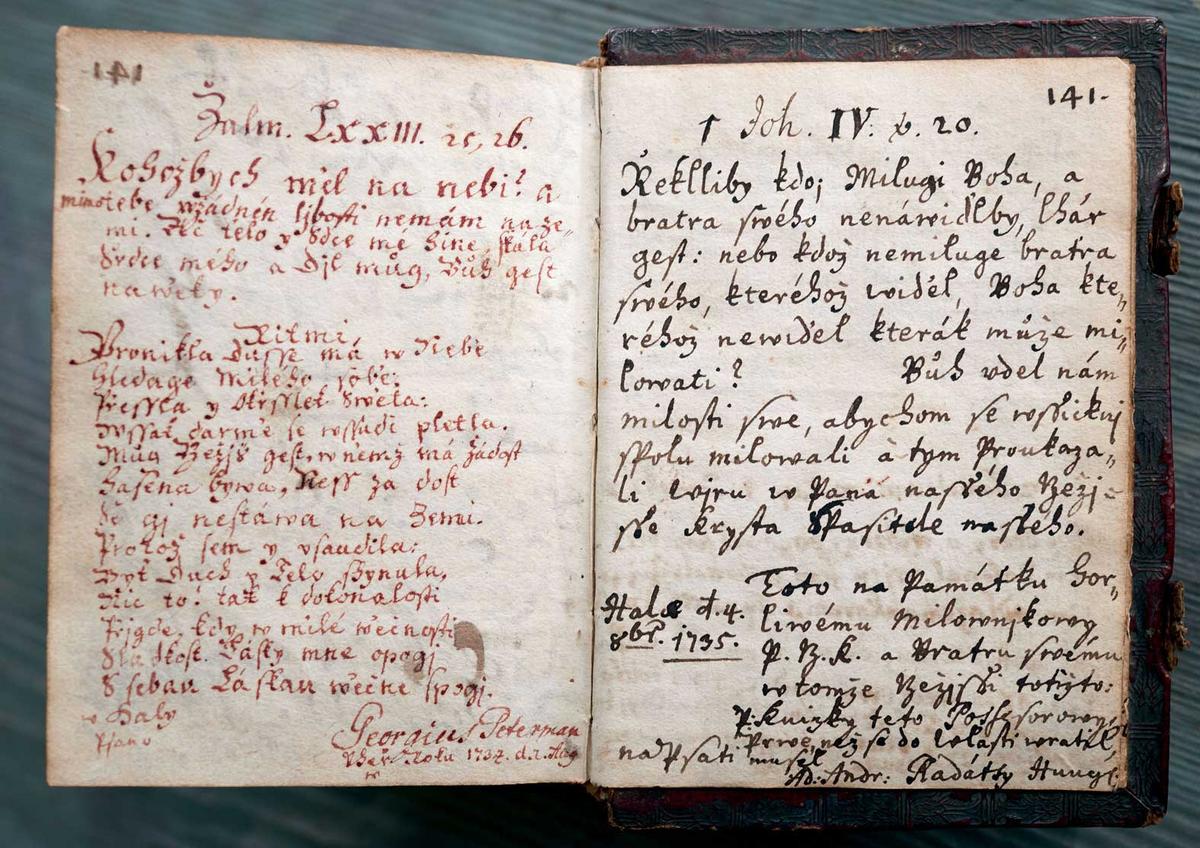 141
Žalm. LXXIII. 25, 26.
Kohožbych měl na nebi? a
mimo tebe w žádném ljbosti nemám na ze„
mi. Ač tělo y Srdce mé hine, skála
Srdce mého a Djl můg, Bůh gest
na weky.
Ritmi
Pronikla Dusse má w Nebe
hledage Milého sobě:
Pressla y Okrsslek Sweta:
Wssak darmě se wssudi pletla.
Můg Gežjš gest, w nemž má žádost
hassena bywa, Ness za dost
Se gj nestáwa na Zemi.
Protož sem y vsaudila:
Byť Duch y Telo zhynula,
Nic to: tak k dokonalosti
Prigde, kdy w milé wečnosti
Sladkost Lásky mne opogj
S sebau Láskau wečne spogj.
w Haly
Psano
Georgius Peterman
Uher Roku 1737. d. 2. Aug
141.
1 Joh. IV. v. 20.
Řeklliby kdo; Milugi Boha, a
bratra swého nenáwidělby, lhár
gest: nebo kdož nemiluge bratra
swého, kteréhož widěl, Boha kte„
réhož newiděl kterák může mi„
lowati? Bůh vděl nám
milosti swe, abychom se wssickni
spolu milowali à tym Proukaza„
li wjru w Pana nasseho Gežj„
sse Krysta Spasitele nasseho.
Toto na Památku hor„
liwému Milownjkowy
P. G. K. a Bratru swému
w tomže Gežjssi totižto:
P. Knizky teto Possessorowy,
Prwe, než se do wlasti wratil,
na Psati musel
Ad: Andr: Radátsy Hung:
Halæ d. 4.
8br. 1735.